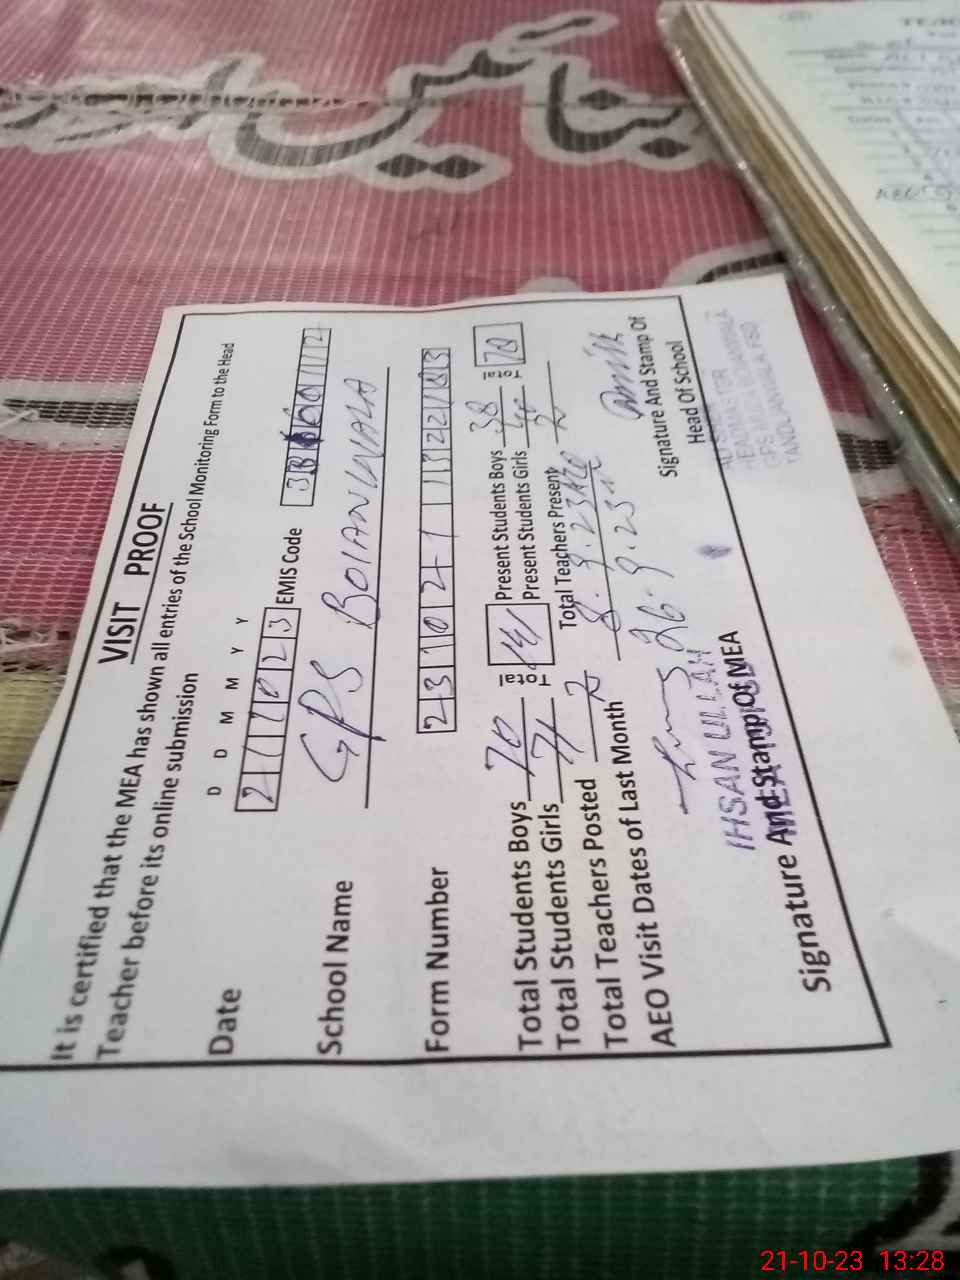 بنائیں اور
VISIT PROOF
It is certified that the MEA has shown all entries of the School Monitoring Form to the Head
Teacher before its online submission
D D M M Y Y
Date 211023 EMIS Code
School Name GPS BOIANWALA
Form Number
Total Students Boys 70 Total 141 Present Students Boys 38 Total 78
Total Students Girls 71 Present Students Girls 40
Total Teachers Posted 2 Total Teachers Present 2
AEO Visit Dates of Last Month 8.9.23
26.9.23
IHSAN ULLAH
MEA
Signature And Stamp Of MEA
Signature And Stamp Of
Head Of School
HEADMASTER
TANDLIANWALA FSD
21-10-23 13:28